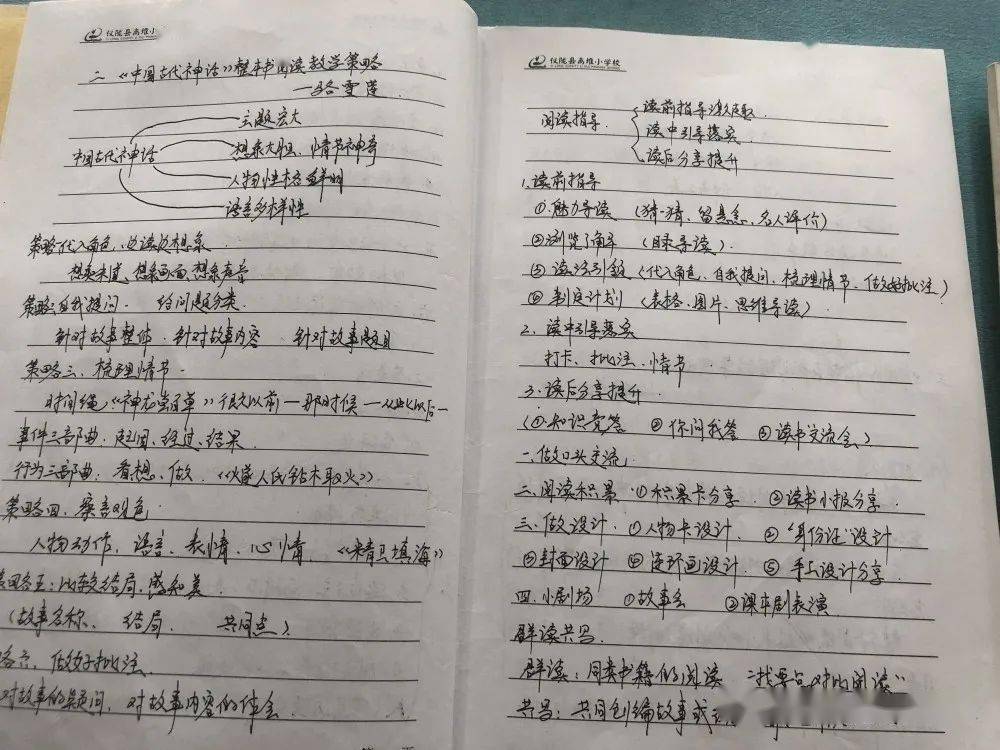 仪陇县高堆小
二、《中国古代神话》整本书阅读教学策略
—骆雪莲
中国古代神话
主题宏大
想象大胆、情节神奇
人物性格鲜明
语言多样性
策略一代入角色,边读边想象
想象味道、想象画面、想象声音
策略二自我提问. 给问题分类.
针对故事整体 针对故事内容 针对故事题目
策略三、梳理情节.
时间绳《神农尝百草》很久以前—那时候—从此以后—
事件三部曲:起因、经过、结果.
行为三部曲:看想、做.《燧人氏钻木取火》
策略四、察言观色
人物动作、语言、表情、心情.《精卫填海》
策略五:比较结局、感知美
(故事名称、 结局、 共同点)
略六、做好批注.
对故事的疑问、对故事内容的体会
仪陇县高堆小学校
阅读指导
读前指导激趣.
读中引导落实
读后分享提升
1.读前指导
①魅力导读 (猜一猜、留悬念、名人评价)
②浏览了解 (目录导读).
③读法引领 (代入角色、自我提问、梳理情节、做好批注)
④制定计划 (表格、图片、思维导读)
2、读中引导落实
打卡、批注、情节
3.读后分享提升
(①知识竞答 ②你问我答 ③读书交流会)
一、做口头交流
二、阅读积累 ①积累卡分享 ②读书小报分享.
三、做设计 ①人物卡设计 ②"身份证"设计
③封面设计 ④连环画设计. ⑤手工设计分享.
四、小剧场 ①故事会 ②课本剧表演
群读共写.
群读:同类书籍的阅读 对比阅读"
共写:共同创编故事或